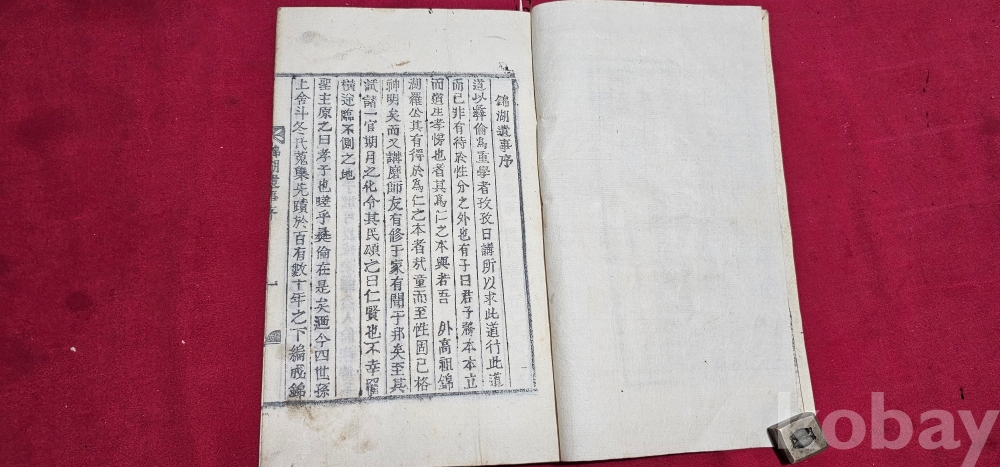 錦湖遺事序
道以彛倫爲重學者孜孜日講所以求此道行此道
而已非有待於性分之外也有子曰君子務本本立
而道生孝悌也者其爲仁之本與若吾 外高祖錦
湖羅公其有得於爲仁之本者㢤童而至性固已格
神明矣而又講磨師友有修于家有聞于邦矣至其
試諸一官期月之化令其民頌之曰仁賢也不幸罹
橫逆臨不測之地
聖主原之曰孝子也嗟乎彛倫在是矣迺今四世孫
上舍斗冬氏蒐集先蹟於百有數十年之下編成錦
錦湖遺事序
一
kobay